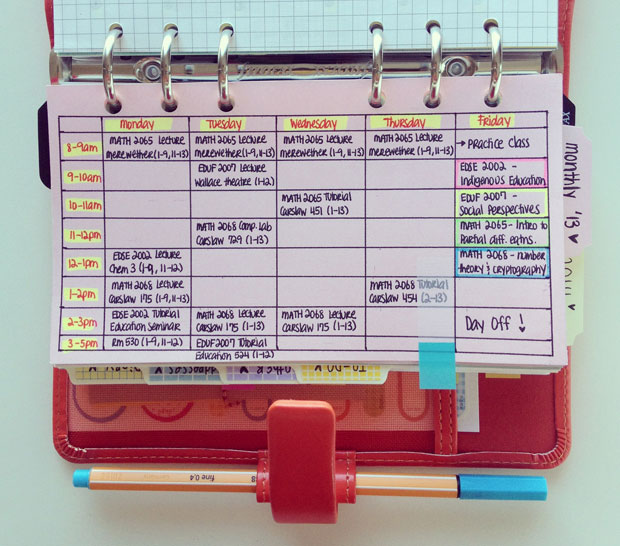 Monday Tuesday Wednesday Thursday Friday
8-9am
MATH 2065 Lecture
merewether (1-9, 11-13)
MATH 2065 Lecture
merewether (1-9, 11-13)
MATH 2065 Lecture
merewether (1-9, 11-13)
MATH 2065 Lecture
merewether (1-9, 11-13)
→ Practice class
9-10am
EDUF 2007 Lecture
Wallace theatre (1-12)
EDSE 2002 -
Indigenous Education
10-11am
MATH 2065 Tutorial
Carslaw 451 (1-13)
EDUF 2007 -
Social Perspectives
11-12pm
MATH 2068 Comp. Lab
Carslaw 729 (1-13)
MATH 2065 - Intro to
Partial diff. eqtns.
12-1pm
EDSE 2002 Lecture
Chem 3 (1-9, 11-12)
MATH 2068 - number
theory & cryptography
1-2pm
MATH 2068 Lecture
Carslaw 175 (1-9, 11-13)
MATH 2068 Tutorial
Carslaw 454 (2-13)
2-3pm
EDSE 2002 Tutorial
Education Seminar
MATH 2068 Lecture
Carslaw 175 (1-13)
MATH 2068 Lecture
Carslaw 175 (1-13)
Day Off!
3-5pm
Rm 530 (1-9, 11-12)
EDUF 2007 Tutorial
Education 524 (1-12)
monthly '13 ♥
2014 ♥
Diary
Addresses
Other
TO-DO
fine 0.4
88